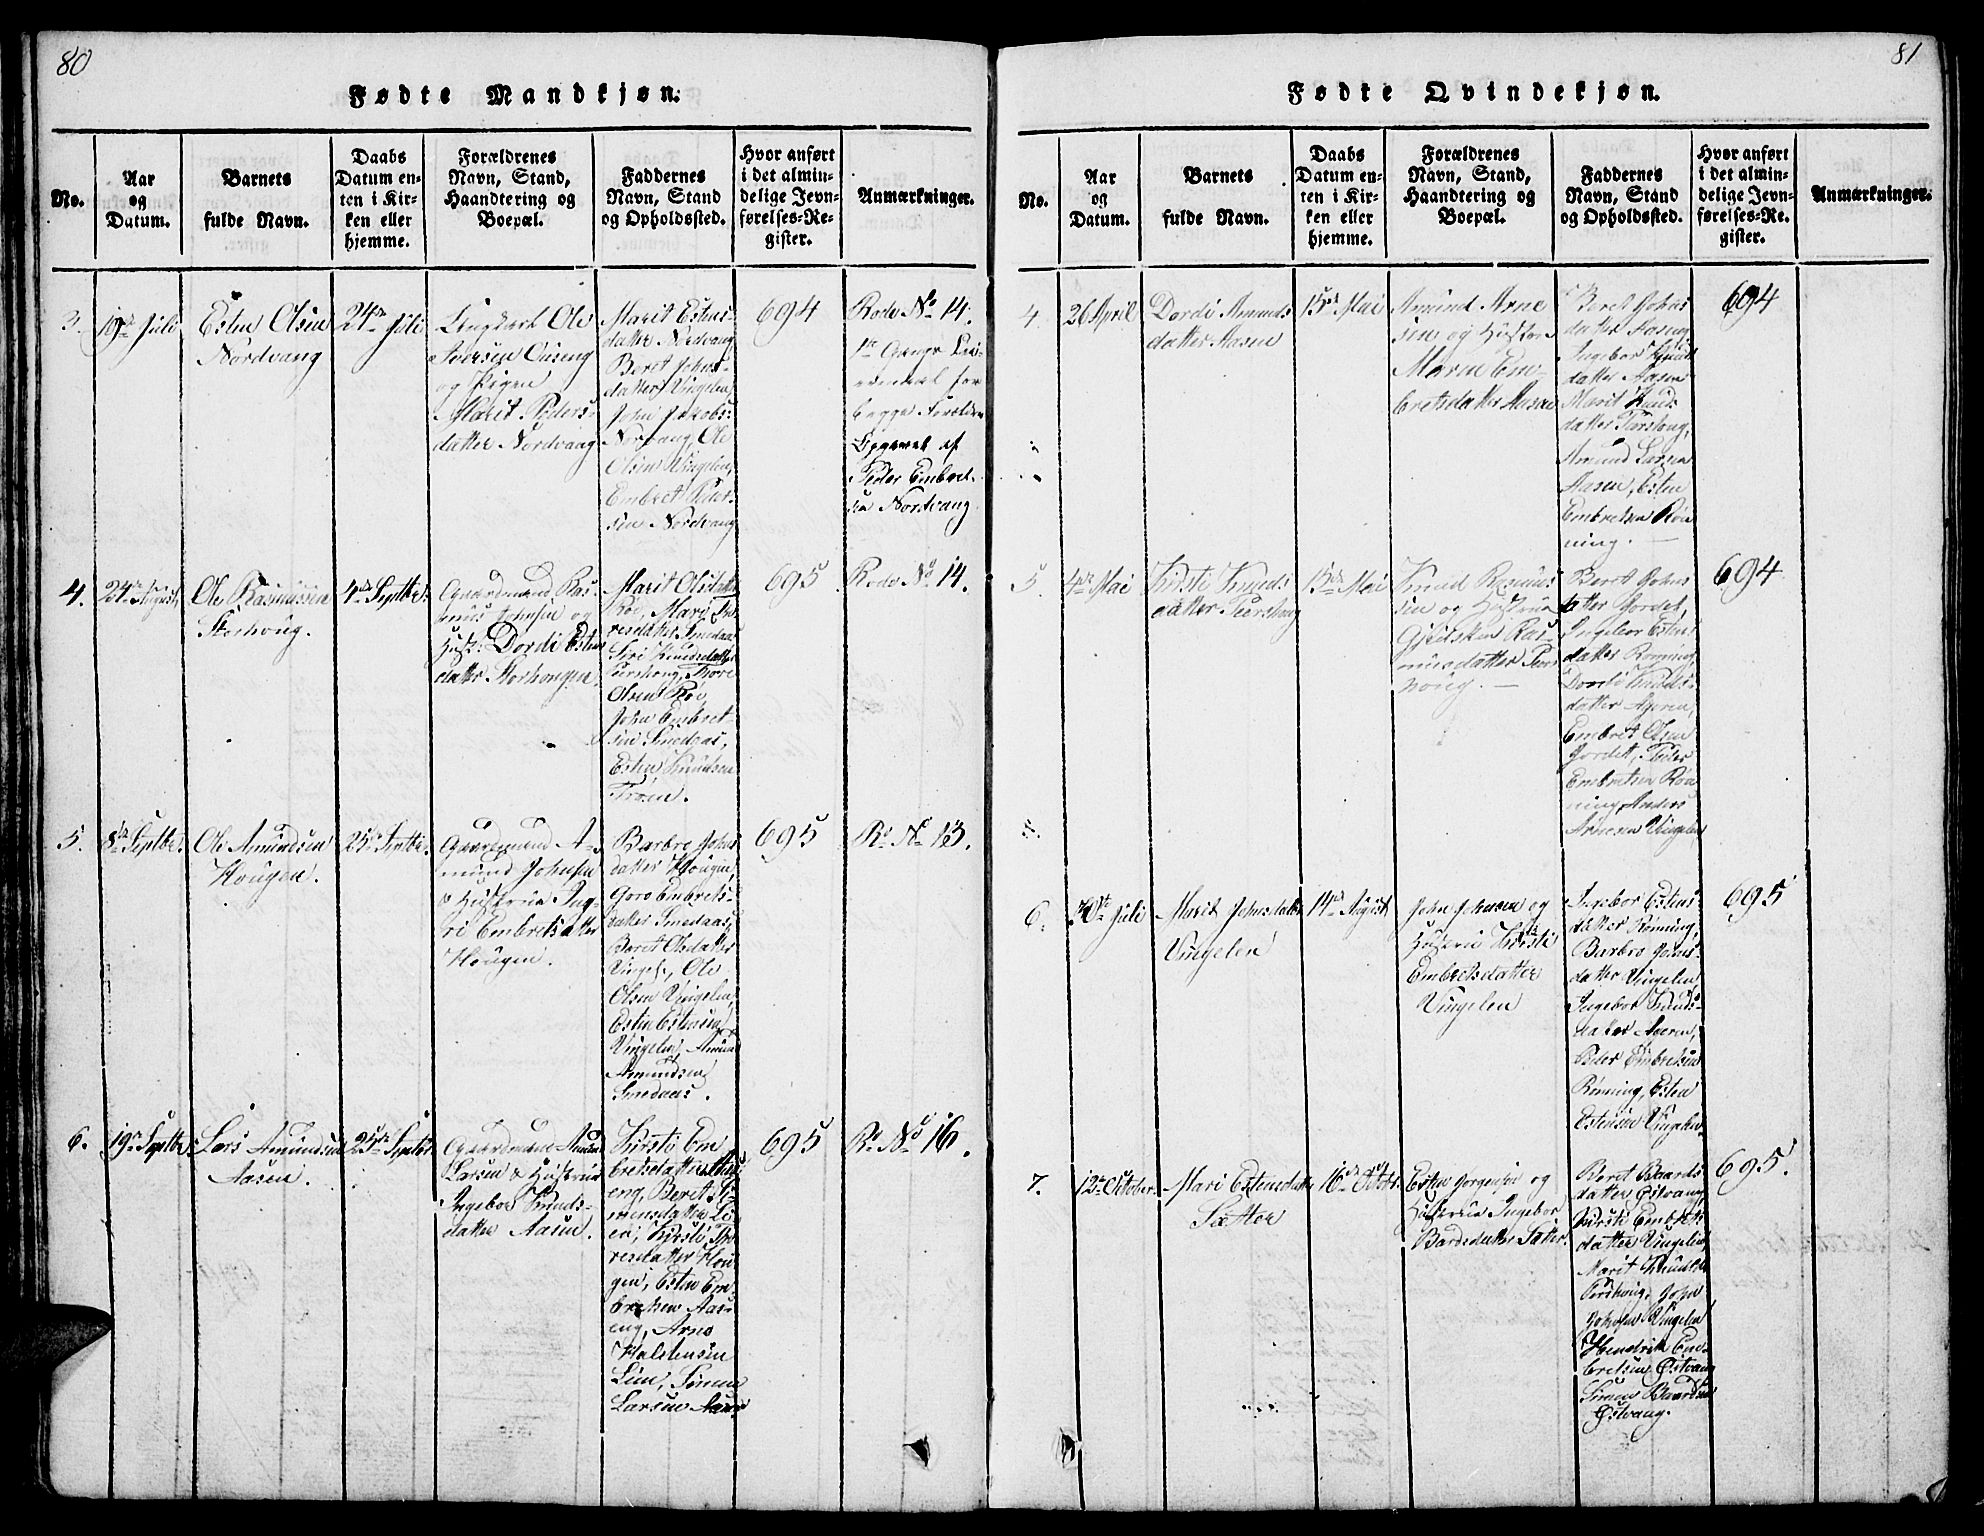 80
Fødte Mandkjøn.
No.
Aar
og
Datum.
Barnets
fulde Navn.
Daabs
Datum en-
ten i Kir-
ken eller
hjemme.
Forældrenes
Navn, Stand,
Haandtering og
Boepæl.
Faddernes
Navn, Stand
og Opholdssted.
Hvor anført
i det almin-
delige Jevn-
førelses-Re-
gister.
Anmærkninger.
3.
19de Juli
Esten Olsen
Nordvang
24de Juli
Ungkarl Ole
Iversen
og Pigen
Marit Peders-
datter Nordvaang
Marit Estens-
datter Nordvang
Beret Johns-
datter Vingelen
John Jakobs:
Norvang, Ole
Olsen Vingelen,
Embret Peder-
sen Nordvang
694
Rode No 14.
1te Gangs Lei-
ermaal for
begge Forældre
Opgavet af
Peder Embret-
sen Nordvang
4.
24de August
Ole Rasmussen
Storhoug.
4de Septbr.
Gaardmand Ras-
mus Johnsen og
Hust: Dordi Estens
datter Storhougen.
Marit Olsdatter
Roe, Mari Tho-
resdatter Smedaas
Siri Knudsdatter
Purshoug, Thore
Olsen Roe,
John Embret-
sen Smedaas,
Esten Knudsen
Trøen.
695
Rode No 14.
5.
8de Septbr.
Ole Amundsen
Hougen.
25de Septbr.
Gaardmand A-
mund Johnsen
& Hustrue Ing-
ri Embretsdatter
Hougen.
Barbro Johns
datter Hougen,
Goro Embrets-
datter Smedaas,
Beret Olsdatter
Vingeln, Ole
Olsen Vingelen,
Esten Estensen
Vingelen, Amund
Amundsen
Smedaas.
695
Ro No 13.
6.
19de Septbr.
Lars Amundsen
Aasen.
25de Septbr.
Gaardmand Amund
Larsen & Hustrue
Ingebor Knuds-
datter Aasen.
Kirsti Em
bretsdatter Aas-
eng, Beret Si-
mensdatter Li-
en, Kirsti Tho-
resdatter Hou-
gen, Esten Em-
bretsen Aas-
eng, Arne
Halstensen
Lien, Simen
Larsen Aasen
695
Ro No 16.
81
Fødte Qvindekjøn.
No.
Aar
og
Datum.
Barnets
fulde Navn.
Daabs
Datum en-
ten i Kir-
ken eller
hjemme.
Forældrenes
Navn, Stand,
Haandtering og
Boepæl.
Faddernes
Navn, Stand
og Opholdssted.
Hvor anført
i det almin-
delige Jevn-
førelses-Re.
gister.
Anmærkninger.
4
26 April
Dordi Amunds
datter Aasen
15de Mai
Amund Arne
sen og Hustrue
Maren Em-
bretsdatter Aasen
Beret Johns
datter Aaseng
Ingebor Knuds
datter Aasen
Marit Knuds
datter Purshoug,
Amund Larsen
Aasen, Esten
Embretsen Røn
ning.
694
5.
4de Mai
Kirsti Knuds
datter Purshoug
15de Mai
Knud Rasmus
sen og Hustrue
Gjertskin Ras-
musdatter Purs
houg.
Beret Johns
datter Jordet,
Ingebor Estens
datter Rønning,
Dordi Knuds-
datter Ageren,
Embret Olsen
Jordet, Peder
Embretsen Røn
ning, Anders
Arnesen Vingelen
694
6.
30te Juli
Marit Johnsdatter
Vingelen
14de August
John Johnsen og
Hustrue Kirsti
Embretsdatter
Vingelen
Ingebor Estens-
datter Rønning,
Barbro Johns-
datter Vingelen,
Ingebor Knuds-
datter Ageren,
Peder Embretsen
Rønning, Esten
Estensen Vingelen.
695
7.
12te October
Mari Estensdatter
Sætter
16de Octobr.
Esten Jørgensen og
Hustrue Ingebor
Bardsdatter Sætter.
Beret Baards
datter Østvang,
Kirsti Embrets
datter Vingelen,
Marit Knudsd.
Purshoug, John
Johnsen Vingelen
Hendrik Em-
bretsen Østvang
Simen Baardsen
Østvang.
695.